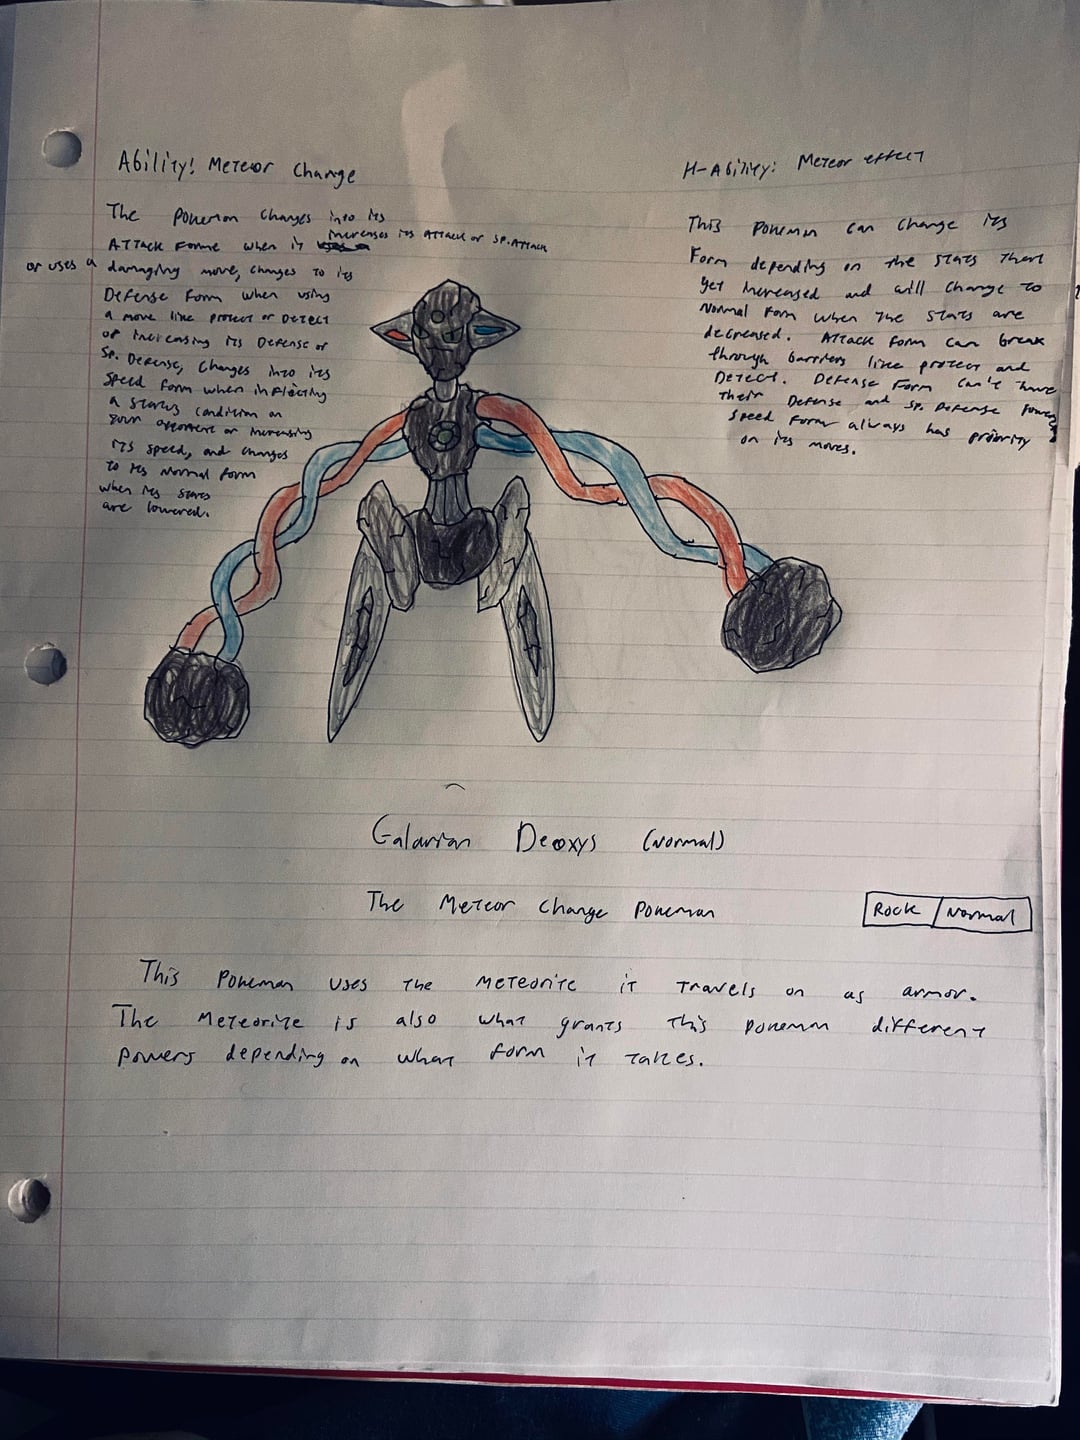 Ability: Meteor Change
The Pokemon changes into its
Attack Forme when it increases its Attack or Sp. Attack
or uses a damaging move, changes to its
Defense Form when using
a move like protect or Detect
or increasing its Defense or
Sp. Defense, changes into its
Speed form when inflicting
a status condition on
your opponent or increasing
its speed, and changes
to its normal form
when its stats
are lowered.
H-Ability: Meteor effect
This Pokemon can change its
Form depending on the stats that
get increased and will change to
Normal form when the stats are
decreased. Attack form can break
through barriers like protect and
Detect. Defense Form can't have
their Defense and Sp. Defense
Speed form always has priority
on its moves.
Galarian Deoxys (Normal)
The Meteor Change Pokemon
Rock / Normal
This Pokemon uses the meteorite it travels on as armor.
The Meteorite is also what grants this pokemon different
powers depending on what form it takes.